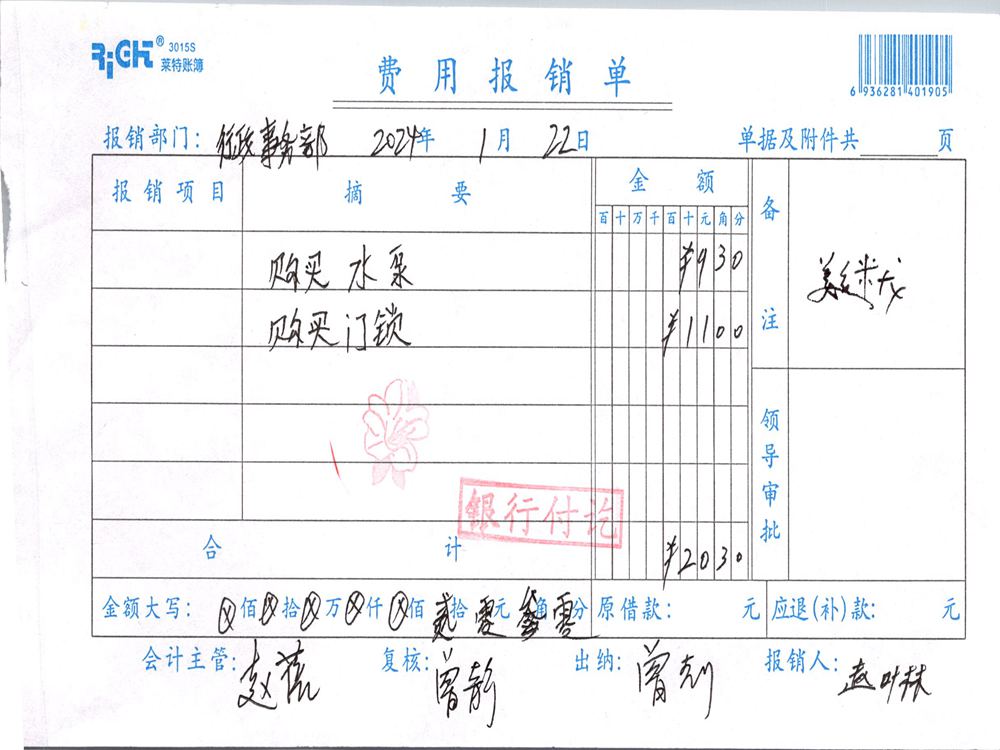 RiGHT® 3015S
莱特账簿
费用报销单
6 936281 401905
报销部门： 行政事务部 2024年 1月 22日 单据及附件共 页
报销项目 摘要 金额 备注
百十万千百十元角分
购买水泵 ¥930
购买门锁 ¥1100
银行付讫
合计 ¥2030
领导审批
金额大写：ⓧ佰ⓧ拾ⓧ万ⓧ仟ⓧ佰贰拾零元叁角零分 原借款： 元 应退(补)款： 元
会计主管： 赵 复核： 曾 出纳： 曾 报销人： 叶林